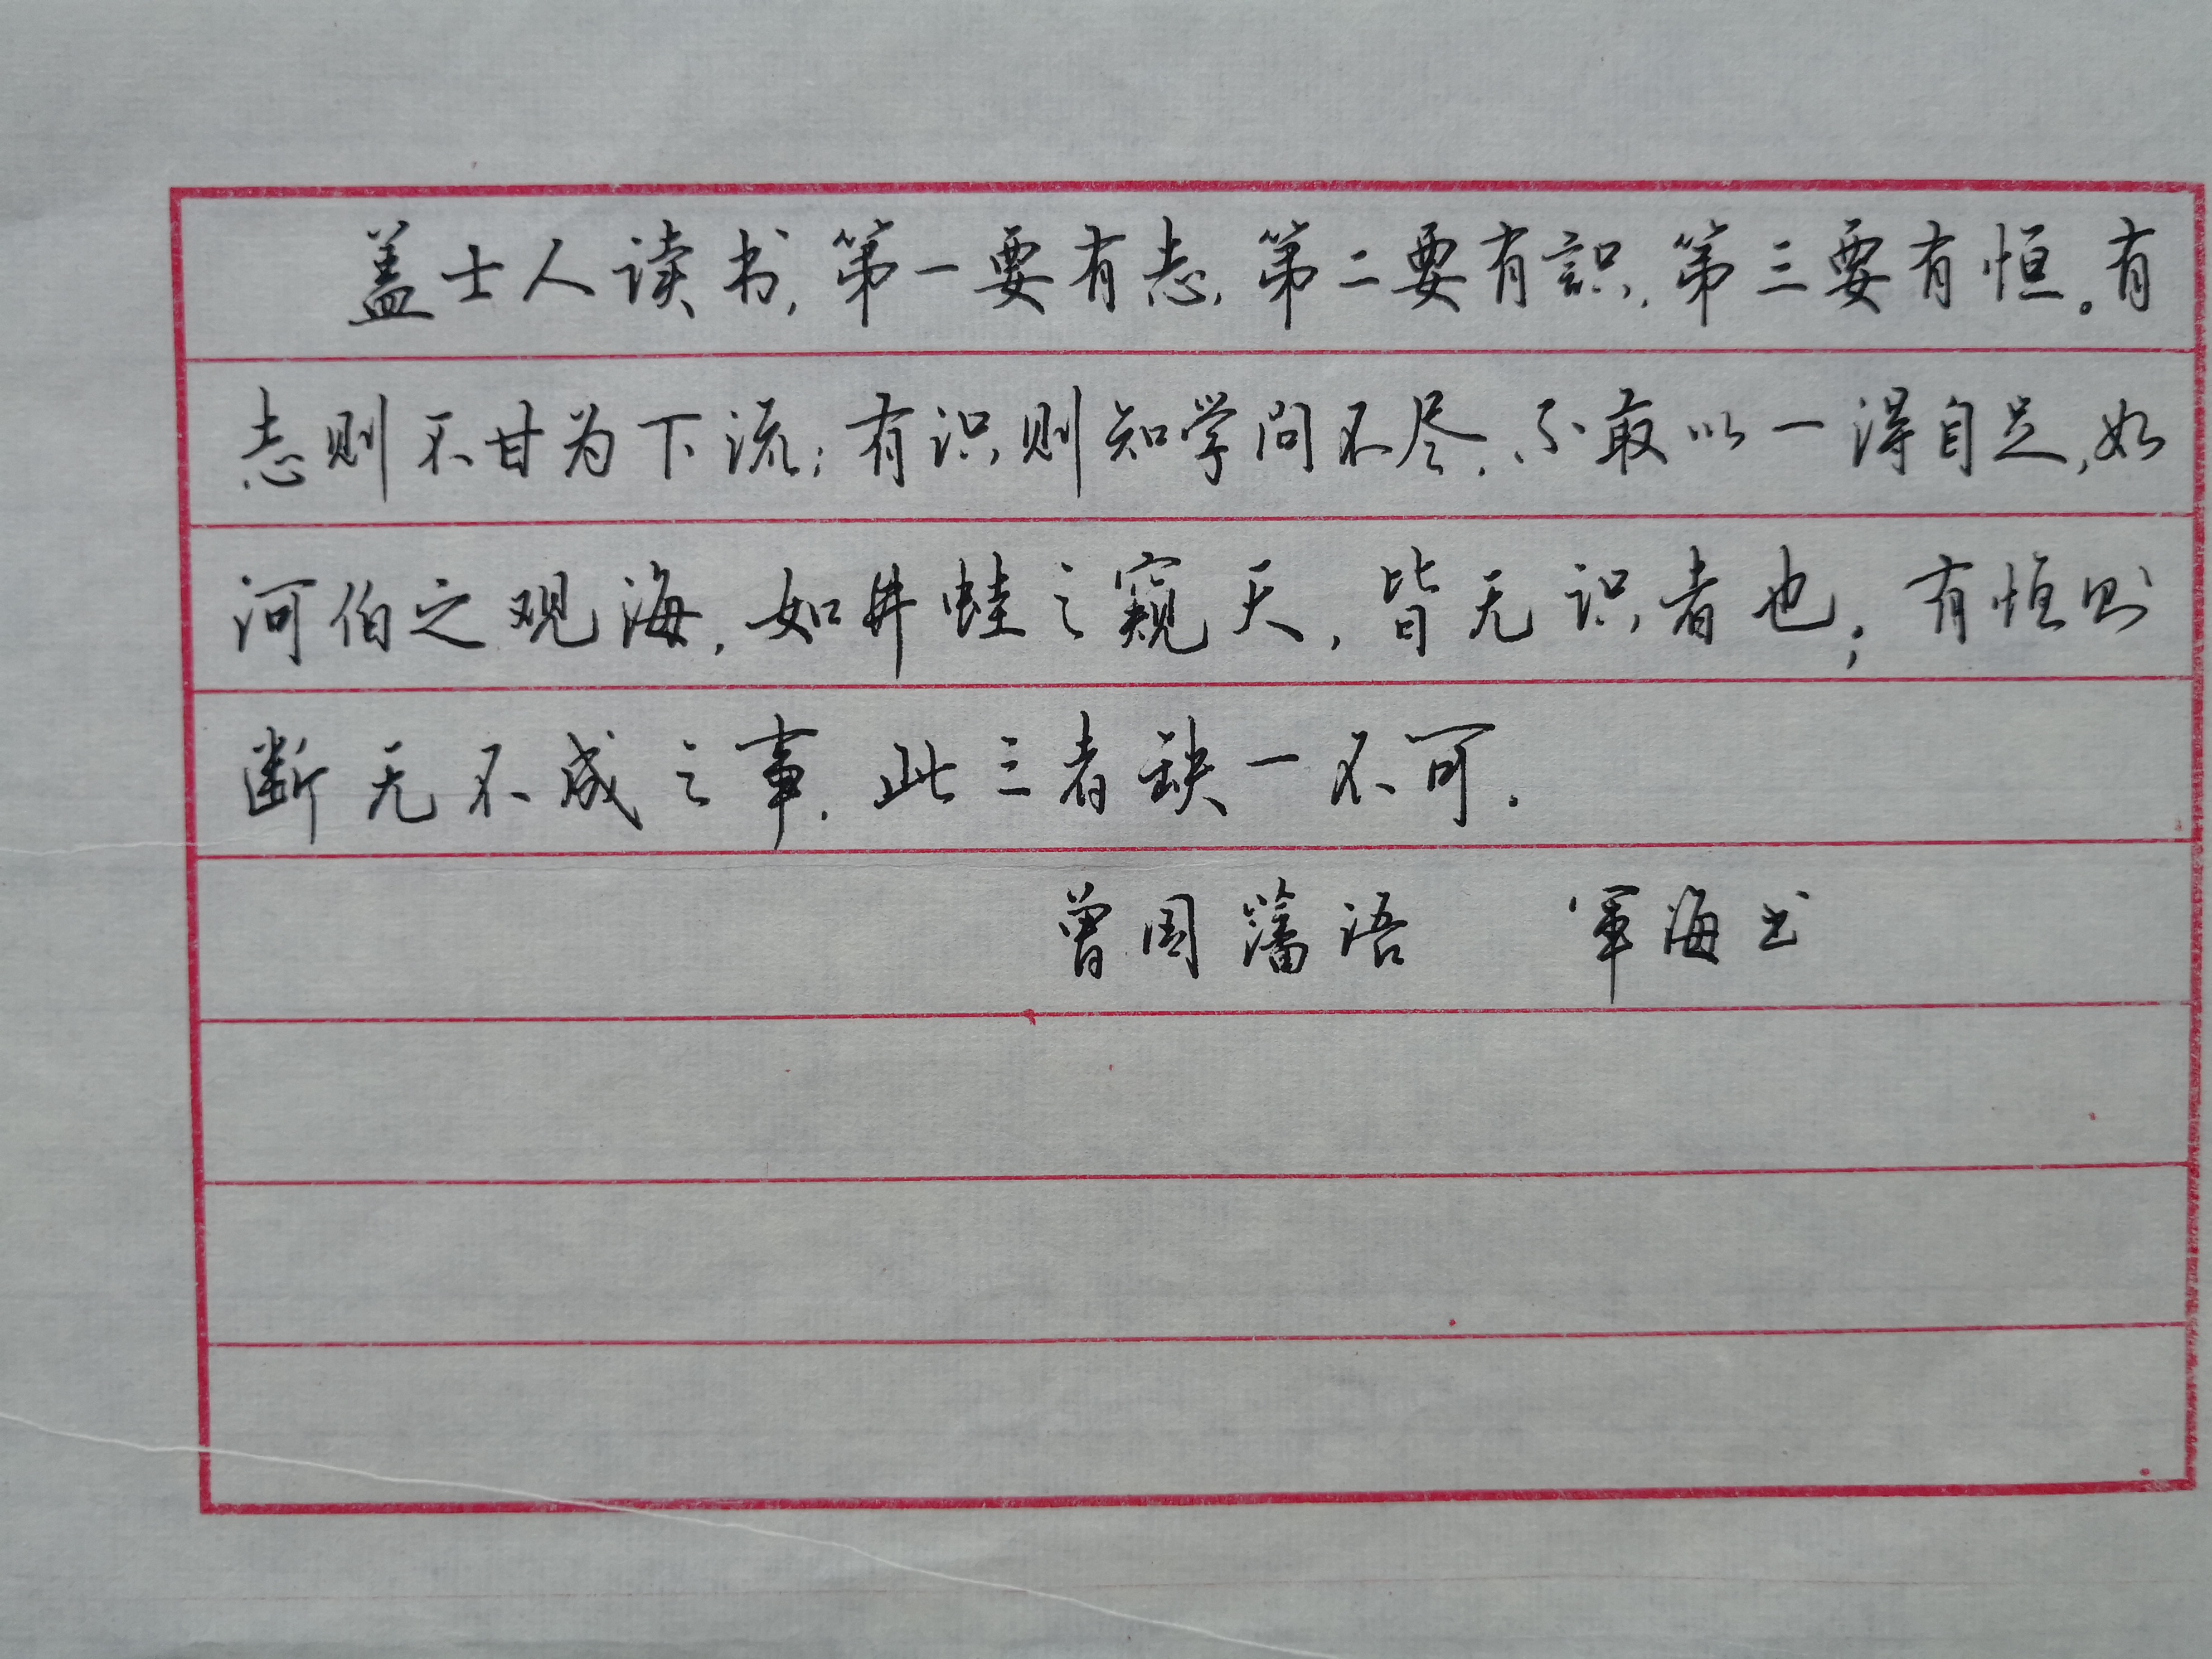 盖士人读书,第一要有志,第二要有識,第三要有恒。有
志则不甘为下流;有识则知学问不尽,不敢以一得自足,如
河伯之观海,如井蛙之窥天,皆无识者也;有恒则
断无不成之事.此三者缺一不可.
曾国藩语 軍海书